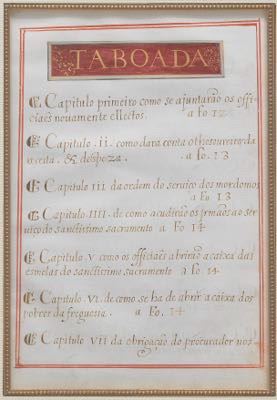 TABOADA
C. Capitulo primeiro como se ajuntarão os offi
ciães nouamente ellectos. a fo 12
C. Capitulo .ii. como dara conta o thesoureiro da
receita, & despeza. . a Fo. 13
C Capitulo III da ordem do seruico dos mordomos
a Fo 13
C. Capitulo IIII. de como acudirão os irmãos ao ser
uico do sanctissimo sacramento a Fo 14
C. Capitulo V como os officiães abrirão a caixa das
esmolas do sanctissimo sacramento a fo 14
C. Capitulo VI. de como se ha de abrir a caixa dos
pobres da freguesia. a Fo. 14
C Capitulo VII da obrigação do procurador nos